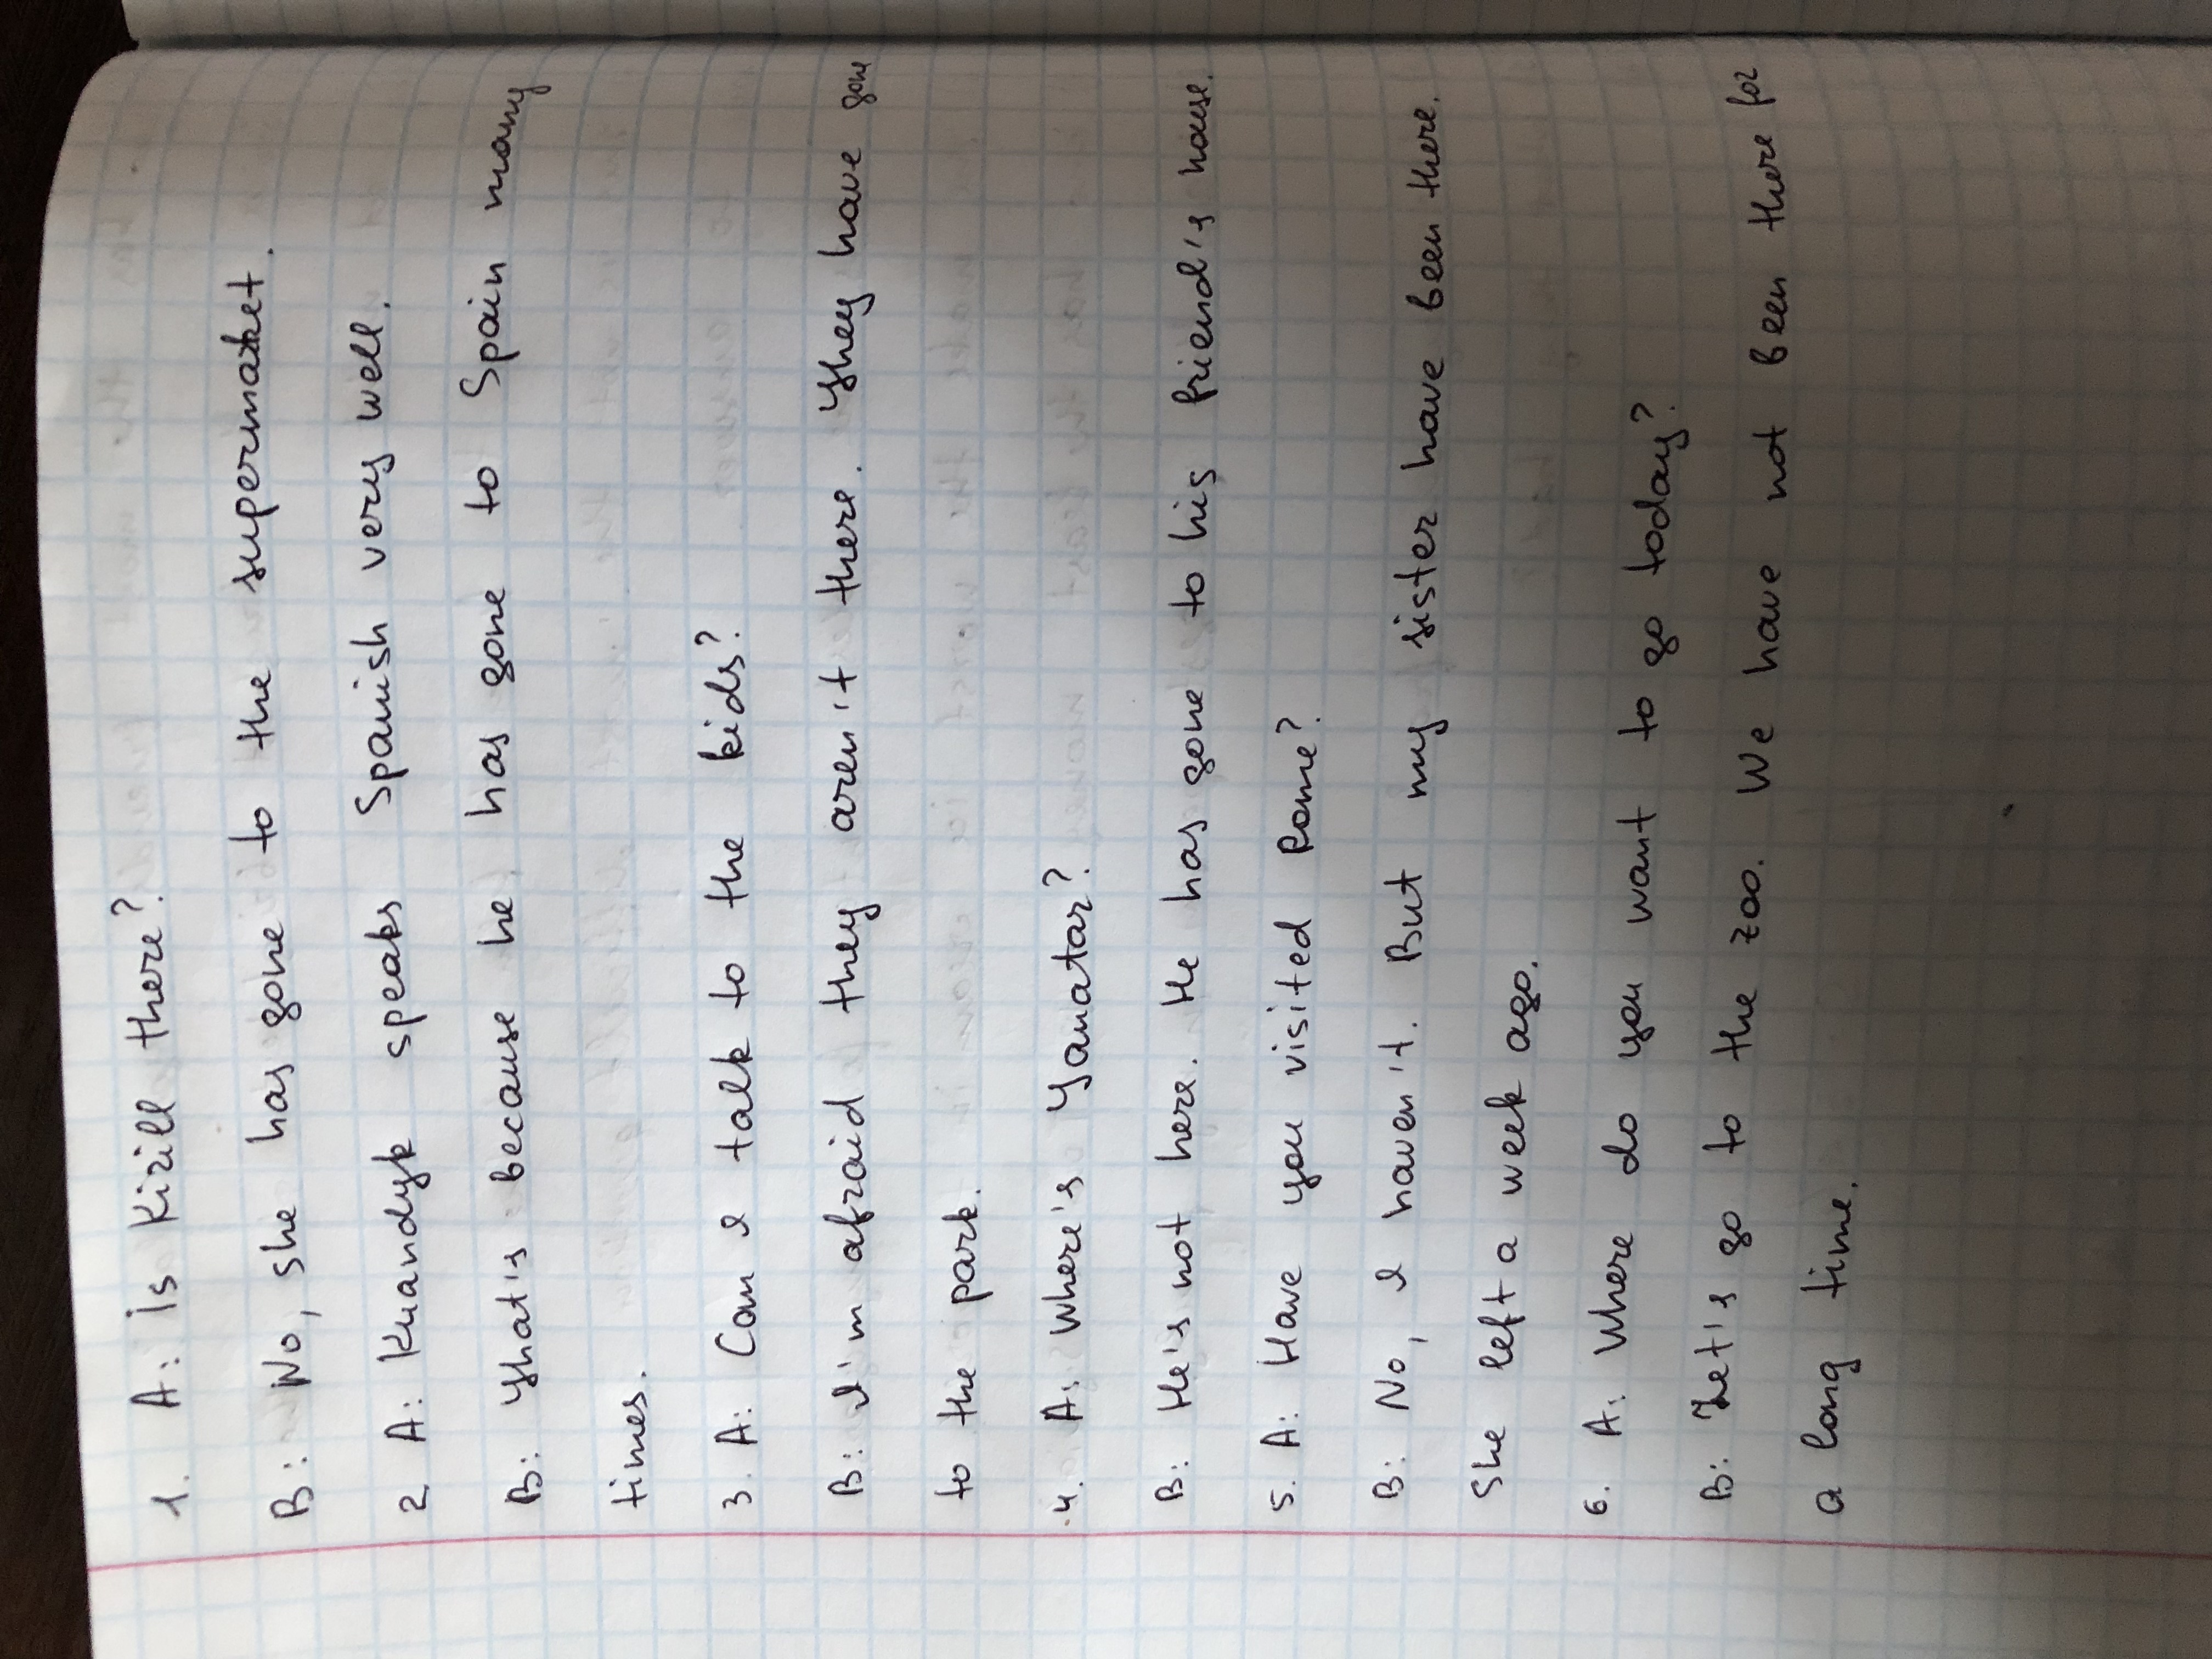 1. A: is Kirill there?
B: No, she has gone to the supermaket.
2 A: Kuandyk speaks Spanish very well.
B: That's because he has gone to Spain many
times.
3. A: Can I talk to the kids?
B: I'm afraid they aren't there. They have gone
to the park.
4. A: Where's Janatar?
B: He's not here. He has gone to his friend's house.
5. A: Have you visited Rome?
B: No, I haven't. But my sister have been there.
She left a week ago.
6. A: Where do you want to go today?
B: Let's go to the zoo. We have not been there for
a long time.